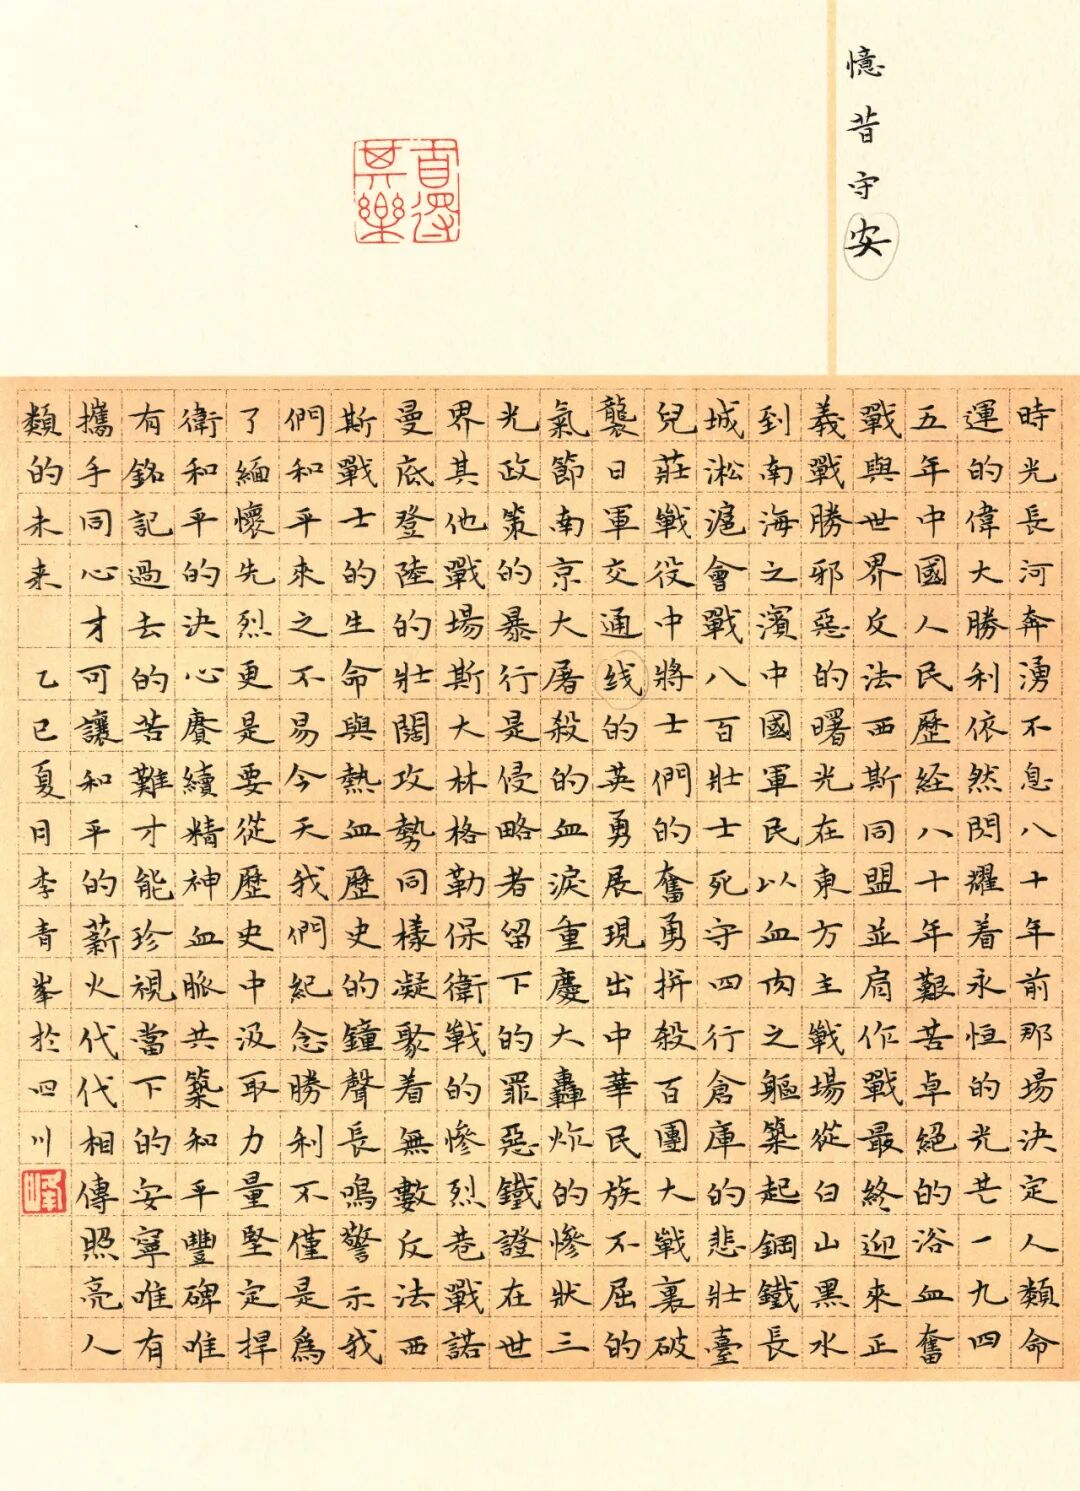 憶昔守安
自得其樂
時光長河奔湧不息八十年前那場決定人類命
運的偉大勝利依然閃耀着永恒的光芒一九四
五年中國人民歷經八十年艱苦卓絕的浴血奮
戰與世界反法西斯同盟並肩作戰最終迎來正
義戰勝邪惡的曙光在東方主戰場從白山黑水
到南海之濱中國軍民以血肉之軀築起鋼鐵長
城淞滬會戰八百壯士死守四行倉庫的悲壯臺
兒莊戰役中將士們的奮勇拼殺百團大戰裏破
襲日軍交通线的英勇展現出中華民族不屈的
氣節南京大屠殺的血淚重慶大轟炸的慘狀三
光政策的暴行是侵略者留下的罪惡鐵證在世
界其他戰場斯大林格勒保衛戰的慘烈巷戰諾
曼底登陸的壯闊攻勢同樣凝聚着無數反法西
斯戰士的生命與熱血歷史的鐘聲長鳴警示我
們和平來之不易今天我們紀念勝利不僅是爲
了緬懷先烈更是要從歷史中汲取力量堅定捍
衛和平的決心賡續精神血脈共築和平豐碑唯
有銘記過去的苦難才能珍視當下的安寧唯有
攜手同心才可讓和平的薪火代代相傳照亮人
類的未来 乙巳夏日李青峯於四川